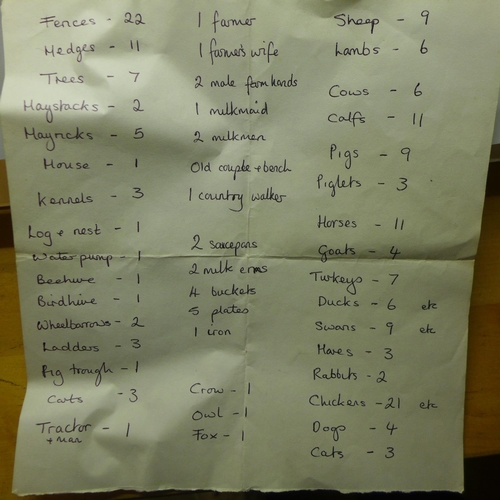 Fences - 22
Hedges - 11
Trees - 7
Haystacks - 2
Hayricks - 5
House - 1
Kennels - 3
Log + nest - 1
Water pump - 1
Beehive - 1
Birdhive - 1
Wheelbarrows - 2
Ladders - 3
Pig trough - 1
Carts - 3
Tractor - 1
+ man
1 farmer
1 farmer's wife
2 male farmhands
1 milkmaid
2 milkmen
Old couple + bench
1 country walker
2 saucepans
2 milk erns
4 buckets
5 plates
1 iron
Crow - 1
Owl - 1
Fox - 1
Sheep - 9
Lambs - 6
Cows - 6
Calfs - 11
Pigs - 9
Piglets - 3
Horses - 11
Goats - 4
Turkeys - 7
Ducks - 6 etc
Swans - 9 etc
Hares - 3
Rabbits - 2
Chickens - 21 etc
Dogs - 4
Cats - 3